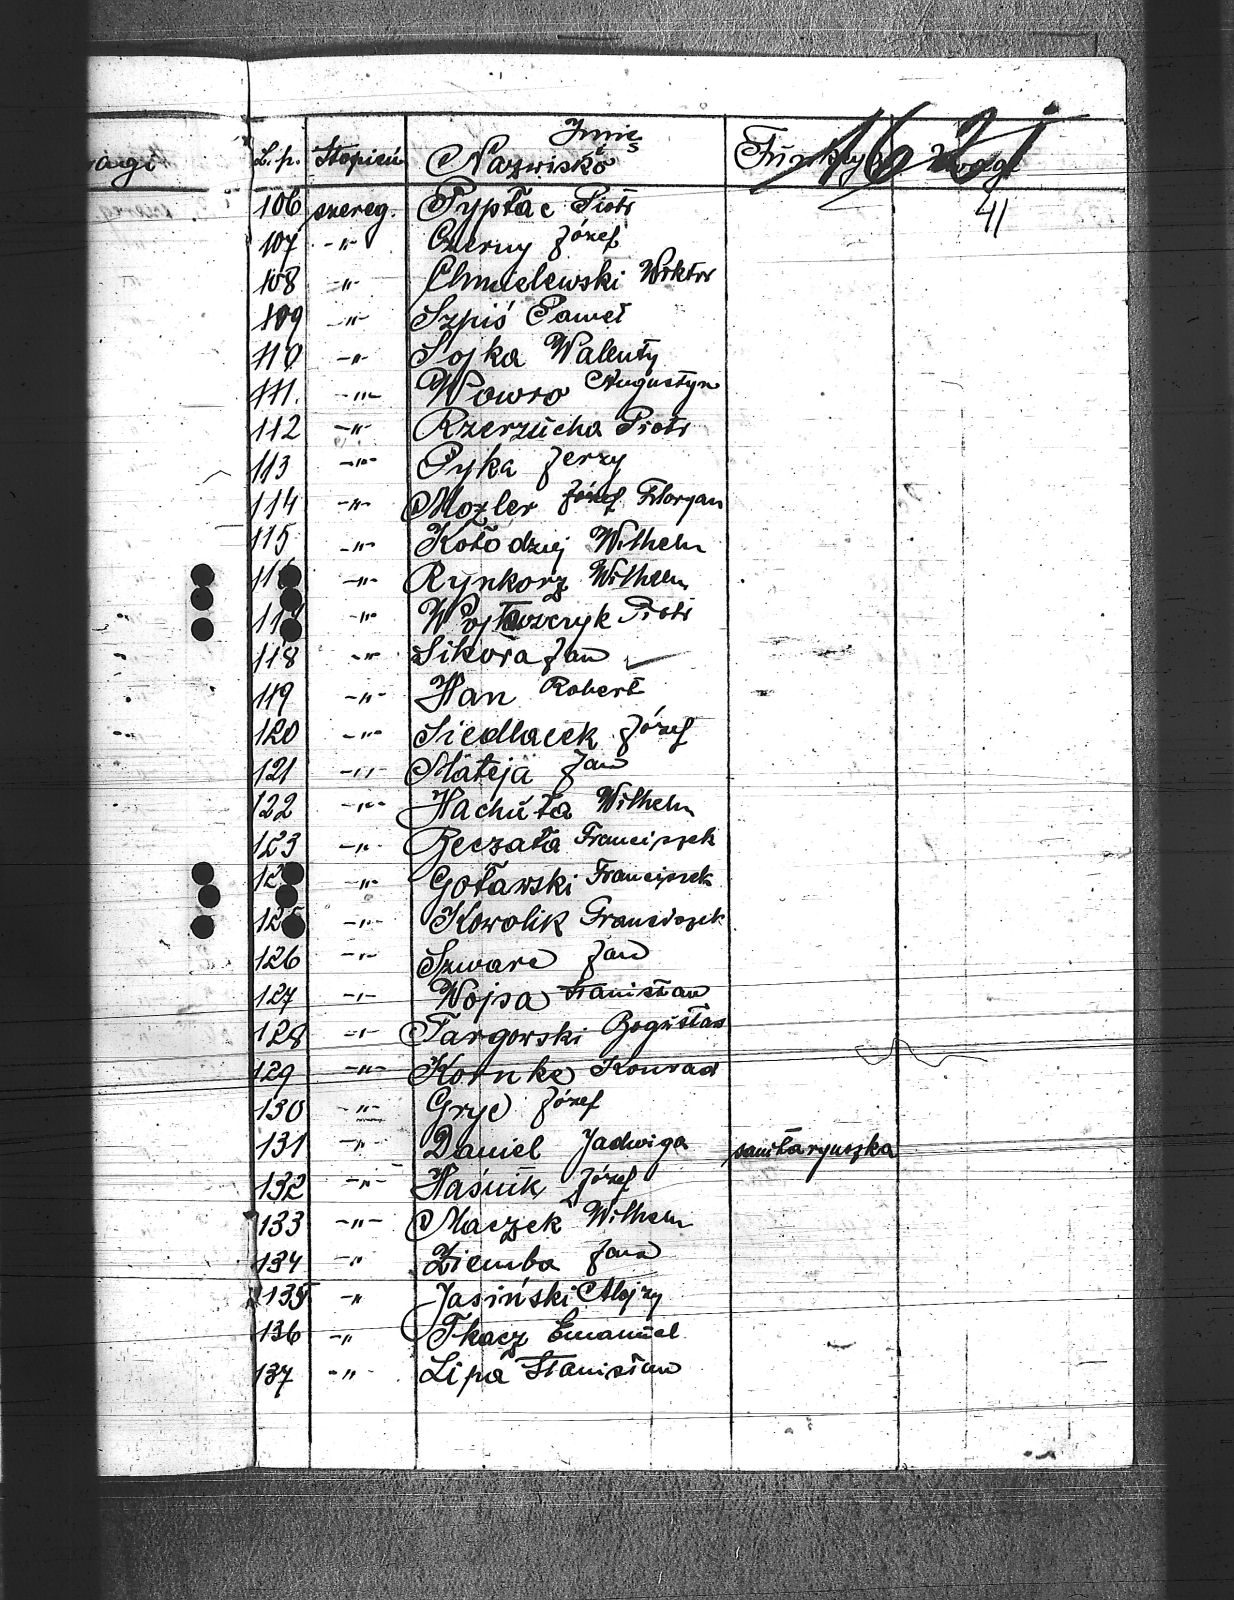 1621
41
L.p. Stopień Imię i Nazwisko Funkcja Uwagi
106 szereg. Pyptac Piotr
107 -"- Czerny Józef
108 -"- Chmielewski Wiktor
109 -"- Szpiś Paweł
110 -"- Sojka Walenty
111. -"- Wowro Augustyn
112 -"- Rzerzucha Piotr
113 -"- Pyka Jerzy
114 -"- Mozler Józef Floryan
115 -"- Kołodziej Wilhelm
116 -"- Rynkorz Wilhelm
117 -"- Wojtowczyk Piotr
118 -"- Sikora Jan
119 -"- Han Robert
120 -"- Siedlacek Józef
121 -"- Mateja Jan
122 -"- Hachuła Wilhelm
123 -"- Beczała Franciszek
124 -"- Goławski Franciszek
125 -"- Kowolik Franciszek
126 -"- Szwarc Jan
127 -"- Wojsa Stanisław
128 -"- Targowski Bogusław
129 -"- Kornke Konrad
130 -"- Gryc Józef
131 -"- Daniel Jadwiga sanitaryuszka
132 -"- Haśnik Józef
133 -"- Maczek Wilhelm
134 -"- Ziemba Jan
135 -"- Jasiński Alojzy
136 -"- Tkacz Emanuel
137 -"- Lipa Stanisław